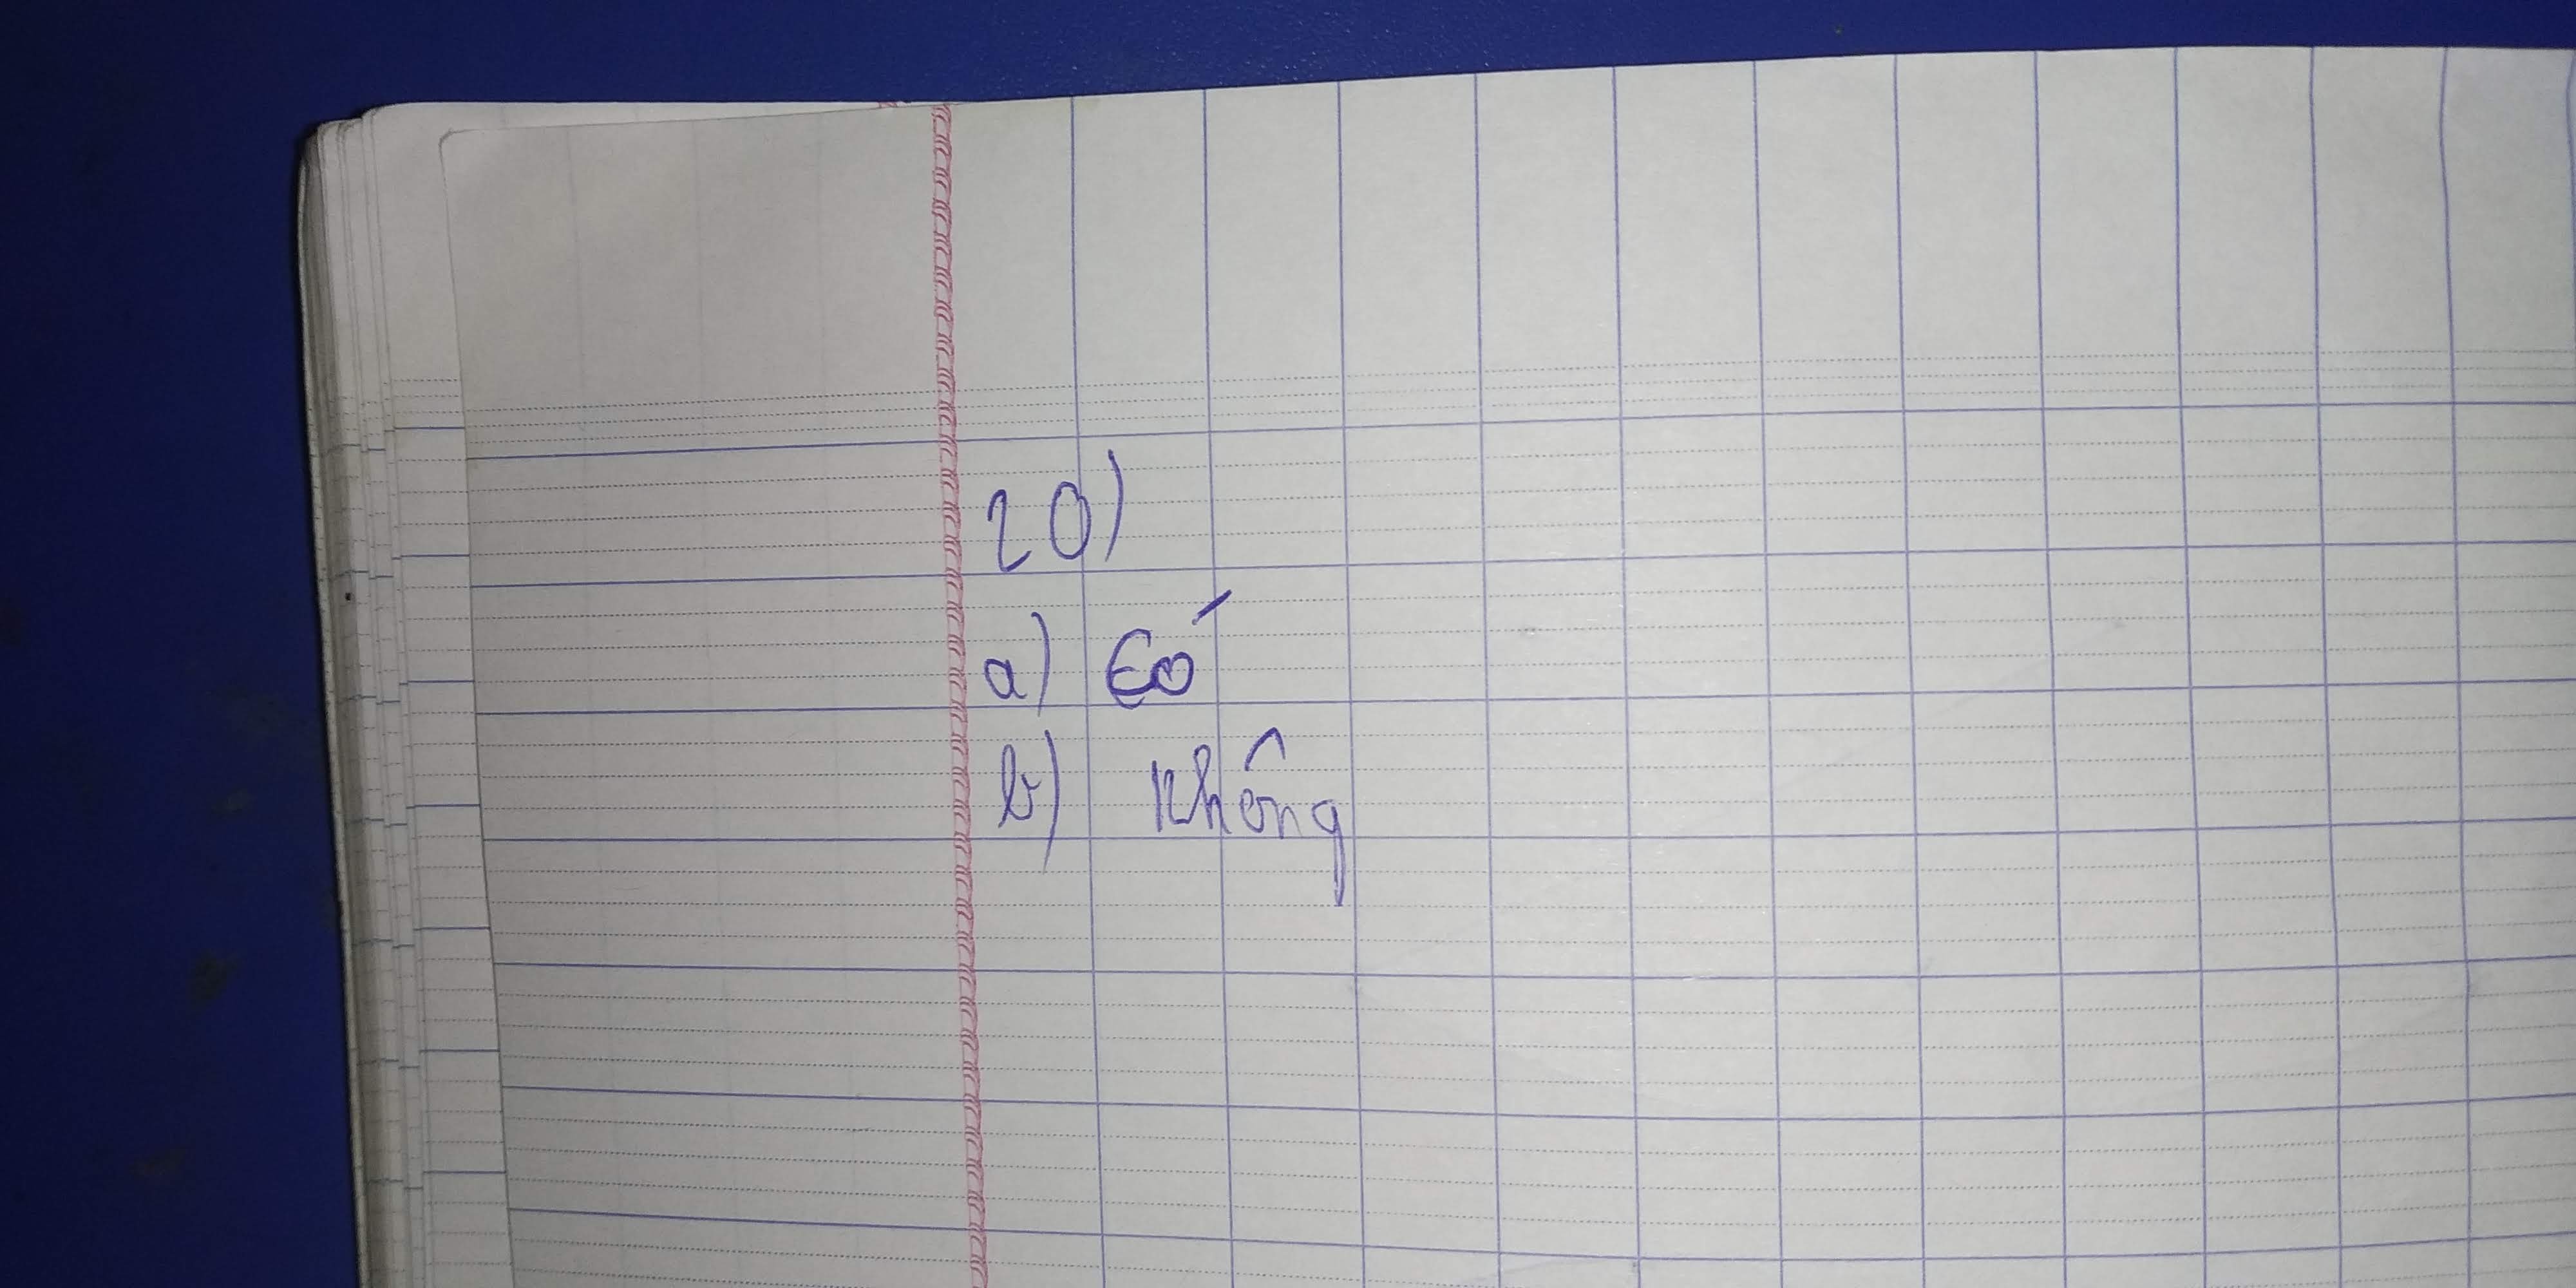 20)
a) Có
b) Không